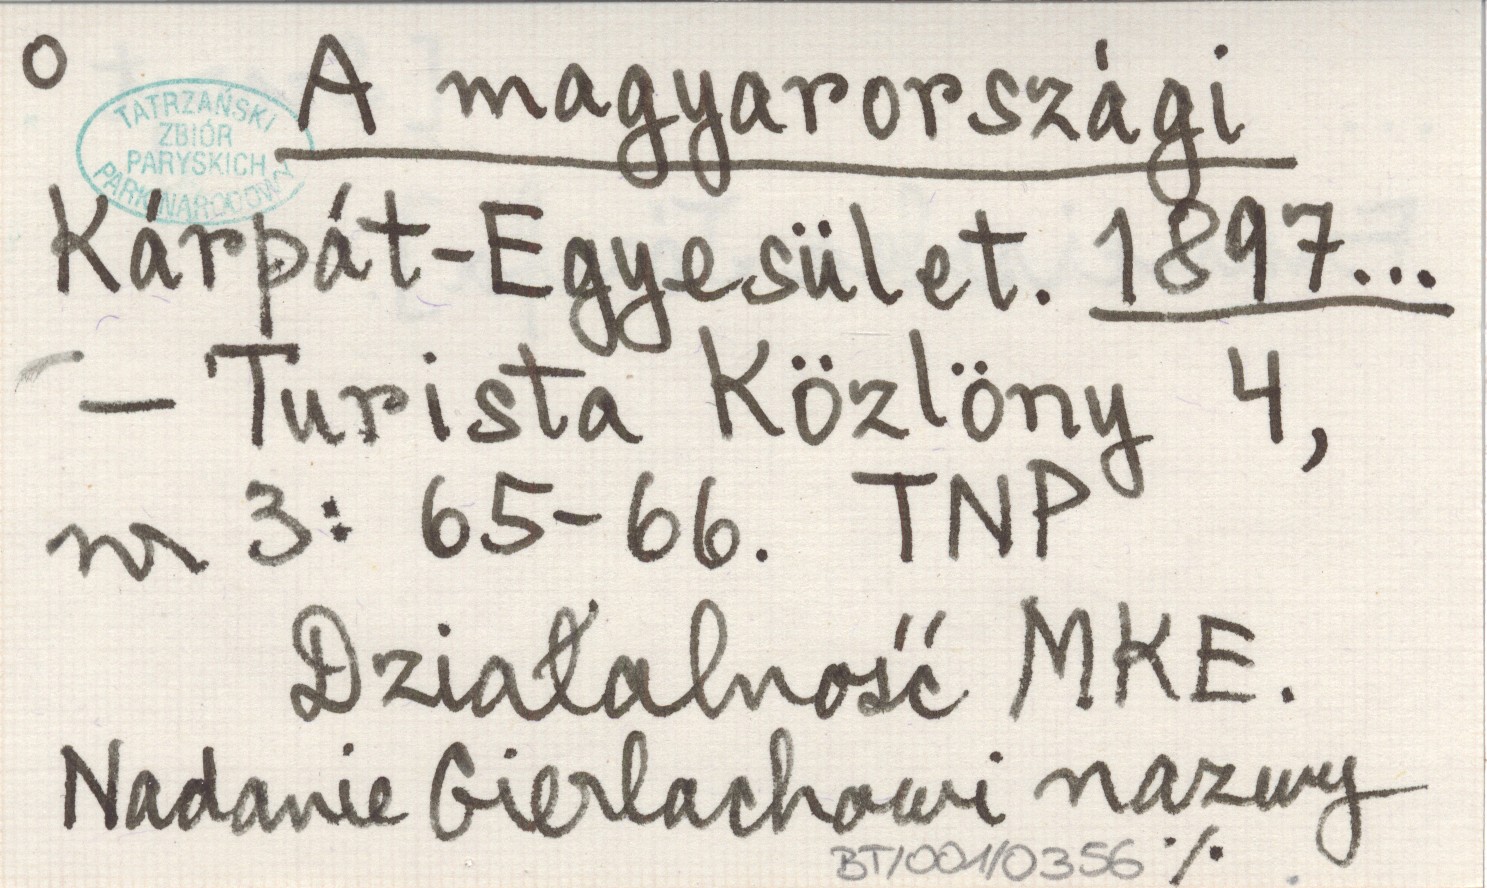 O A magyarországi
TATRZAŃSKI
ZBIÓR
PARYSKICH
PARK NARODOWY
Kárpát-Egyesület. 1897...
– Turista Közlöny 4,
nr 3: 65-66. TNP
Działalność MKE.
Nadanie Gierlachowi nazwy
BT/001/0356 ·/.